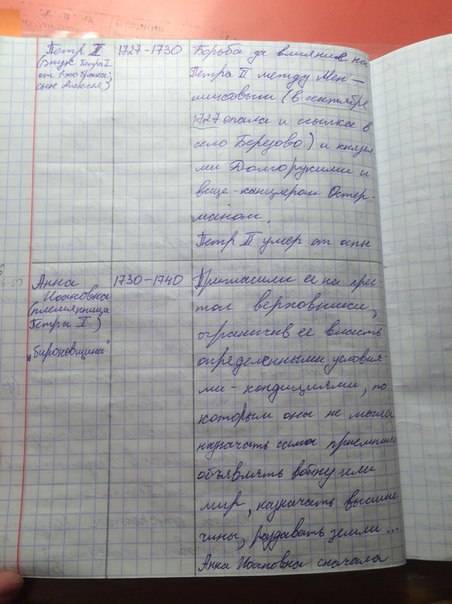 Петр II
(внук Петра I
от
сына Алексея)
1727-1730
Борьба за влияние на
Петра II между Мен-
шиковым (в сентябре
1727 опала и ссылка в
село Березово) и князья
ми Долгорукими и
вице-канцлером Остер-
маном.
Петр II умер от оспы
Анна
Иоановна
(племянница
Петра I)
"бироновщина"
1730-1740
Пригласили ее на прес
тол верховники,
ограничив ее власть
определенными условия
ми - кондициями, по
которым она не могла
назначать сама приемника
объявлять войну или
мир, назначать высшие
чины, раздавать земли...
Анна Иоановна сначала